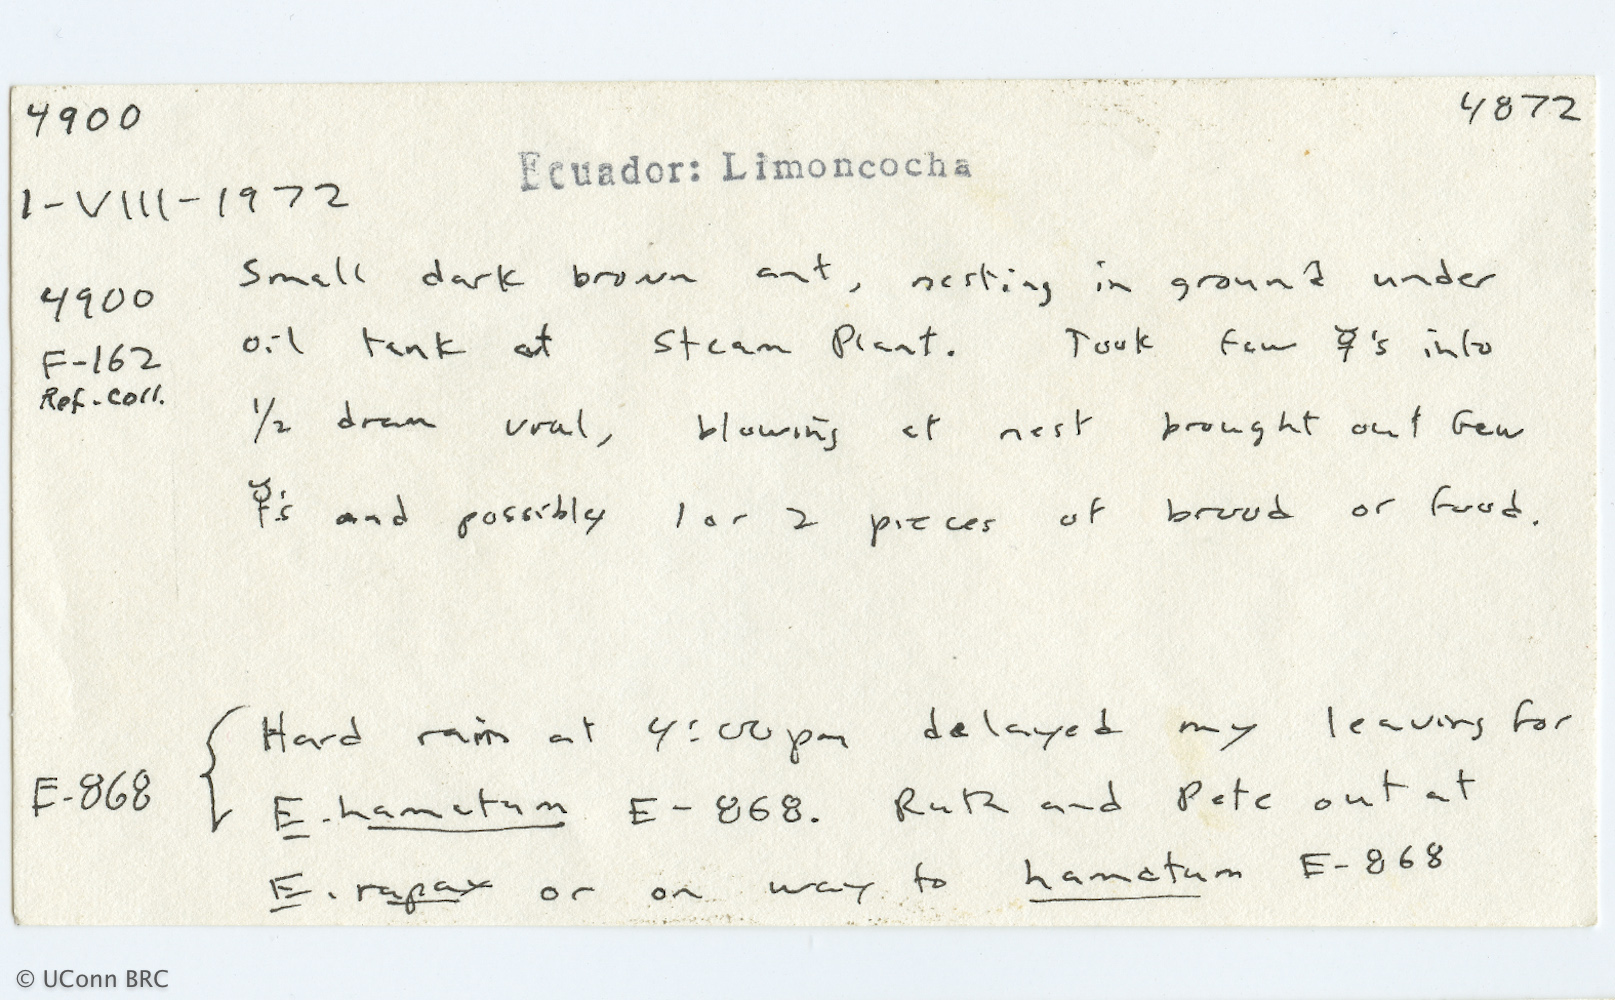 4900
4872
Ecuador: Limoncocha
1-VIII-1972
4900
F-162
Ref. Coll.
Small dark brown ant, nesting in ground under
oil tank at Steam Plant. Took few ☿'s into
1/2 dram vial, blowing at nest brought out few
☿'s and possibly 1 or 2 pieces of brood or food.
E-868
Hard rain at 4:00 pm delayed my leaving for
E. hamatum E-868. Ruth and Pete out at
E. rapax or on way to hamatum E-868
© UConn BRC